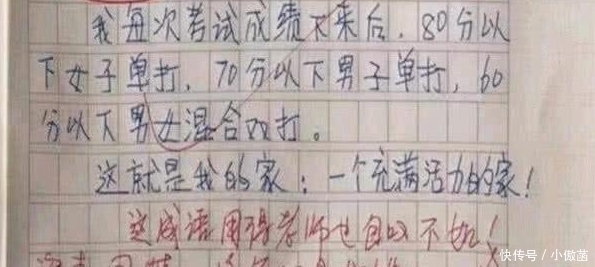 我每次考试成绩下来后，80分以
下女子单打，70分以下男子单打，60
分以下男女混合双打。
这就是我的家：一个充满活力的家！
这成语用得老师也自叹不如！
快传号/小傲菡